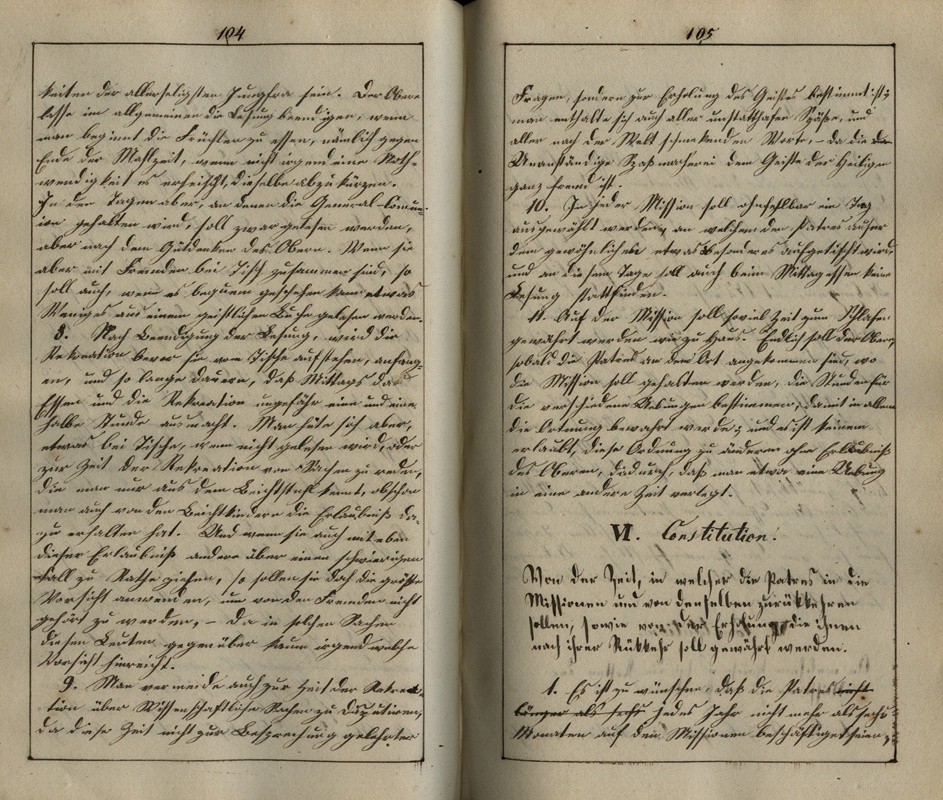 104
keiten der allerseligsten Jungfrau sein. Der Obere
lasse im allgemeinen die Lesung beendigen, wenn
man beginnt die Früchte zu essen, nämlich gegen
Ende der Mahlzeit, wenn nicht irgend eine Noth-
wendigkeit es erheischt, dieselbe abzukürzen.
In den Tagen aber, an denen die General-Comun-
ion gehalten wird, soll zwar gelesen werden,
aber nach dem Gutdenken des Obern. Wenn sie
aber mit Fremden bei Tisch zusammen sind, so
soll auch, wenn es bequem geschehen kann etwas
Weniges aus einem geistlichen Buche gelesen werden.
8. Nach Beendigung der Lesung, wird die
Rekreation bevor sie vom Tische aufstehen, anfang-
en, und so lange dauern, daß Mittags das
Essen und die Rekreation ungefähr eine und eine
halbe Stunde ausmacht. Man hüte sich aber,
etwas bei Tische, wenn nicht gelesen wird, oder
zur Zeit der Rekreation von Sachen zu reden,
die man nur aus dem Beichtstuhl kennt, obschon
man auch von den Beichtkindern die Erlaubniß da-
zu erhalten hat. Und wenn sie auch mit eben
dieser Erlaubniß andere über einen schwierigen
Fall zu Rathe ziehen, so sollen sie doch die größte
Vorsicht anwenden, um von den Fremden nicht
gehört zu werden, – da in solchen Sachen
diesen Leuten gegenüber kaum irgend welche
Vorsicht hinreicht.
9. Man vermeide auch zur Zeit der Rekrea-
tion über Wissenschaftliche Sachen zu disputiren,
da diese Zeit nicht zur Besprechung gelehrter
105
Fragen, sondern zur Erholung des Geistes bestimmt ist;
man enthalte sich auch aller unstatthafter Späße, und
aller nach der Welt schmekenden Worte, – da die
Unanständige Spaßmacherei dem Geiste der Heiligen
ganz fremd ist.
10. In jeder Mission soll unfehlbar ein Tag
ausgewählt werden, an welchem den Patres außer
dem gewöhnlichen etwas Besonderes aufgetischt wird,
und an diesem Tage soll auch beim Mittagessen keine
Lesung stattfinden.
11. Auf der Mission soll soviel Zeit zum Schlafen
gewährt werden wie zu Haus. Endlich soll der Obere,
sobald die Patres an dem Ort angekommen sind, wo
die Mission soll gehalten werden, die Stunden für
die verschiedene Uebungen bestimmen, damit in allem
die Ortnung bewahrt werde; und es ist keinem
erlaubt, diese Ordnung zu ändern ohne Erlaubniß
des Oberen, dadurch, daß man etwa eine Uebung
in eine andere Zeit verlegt.
VI. Constitution.
Von der Zeit, in welcher die Patres in die
Missionen und von denselben zurückkehren
sollen, sowie von der Erholung, die ihnen
nach ihrer Rükkehr soll gewährt werden.
1. Es ist zu wünschen, daß die Patres nicht
länger als sechs jedes Jahr nicht mehr als sechs
Monaten auf den Missionen beschäftiget seien,